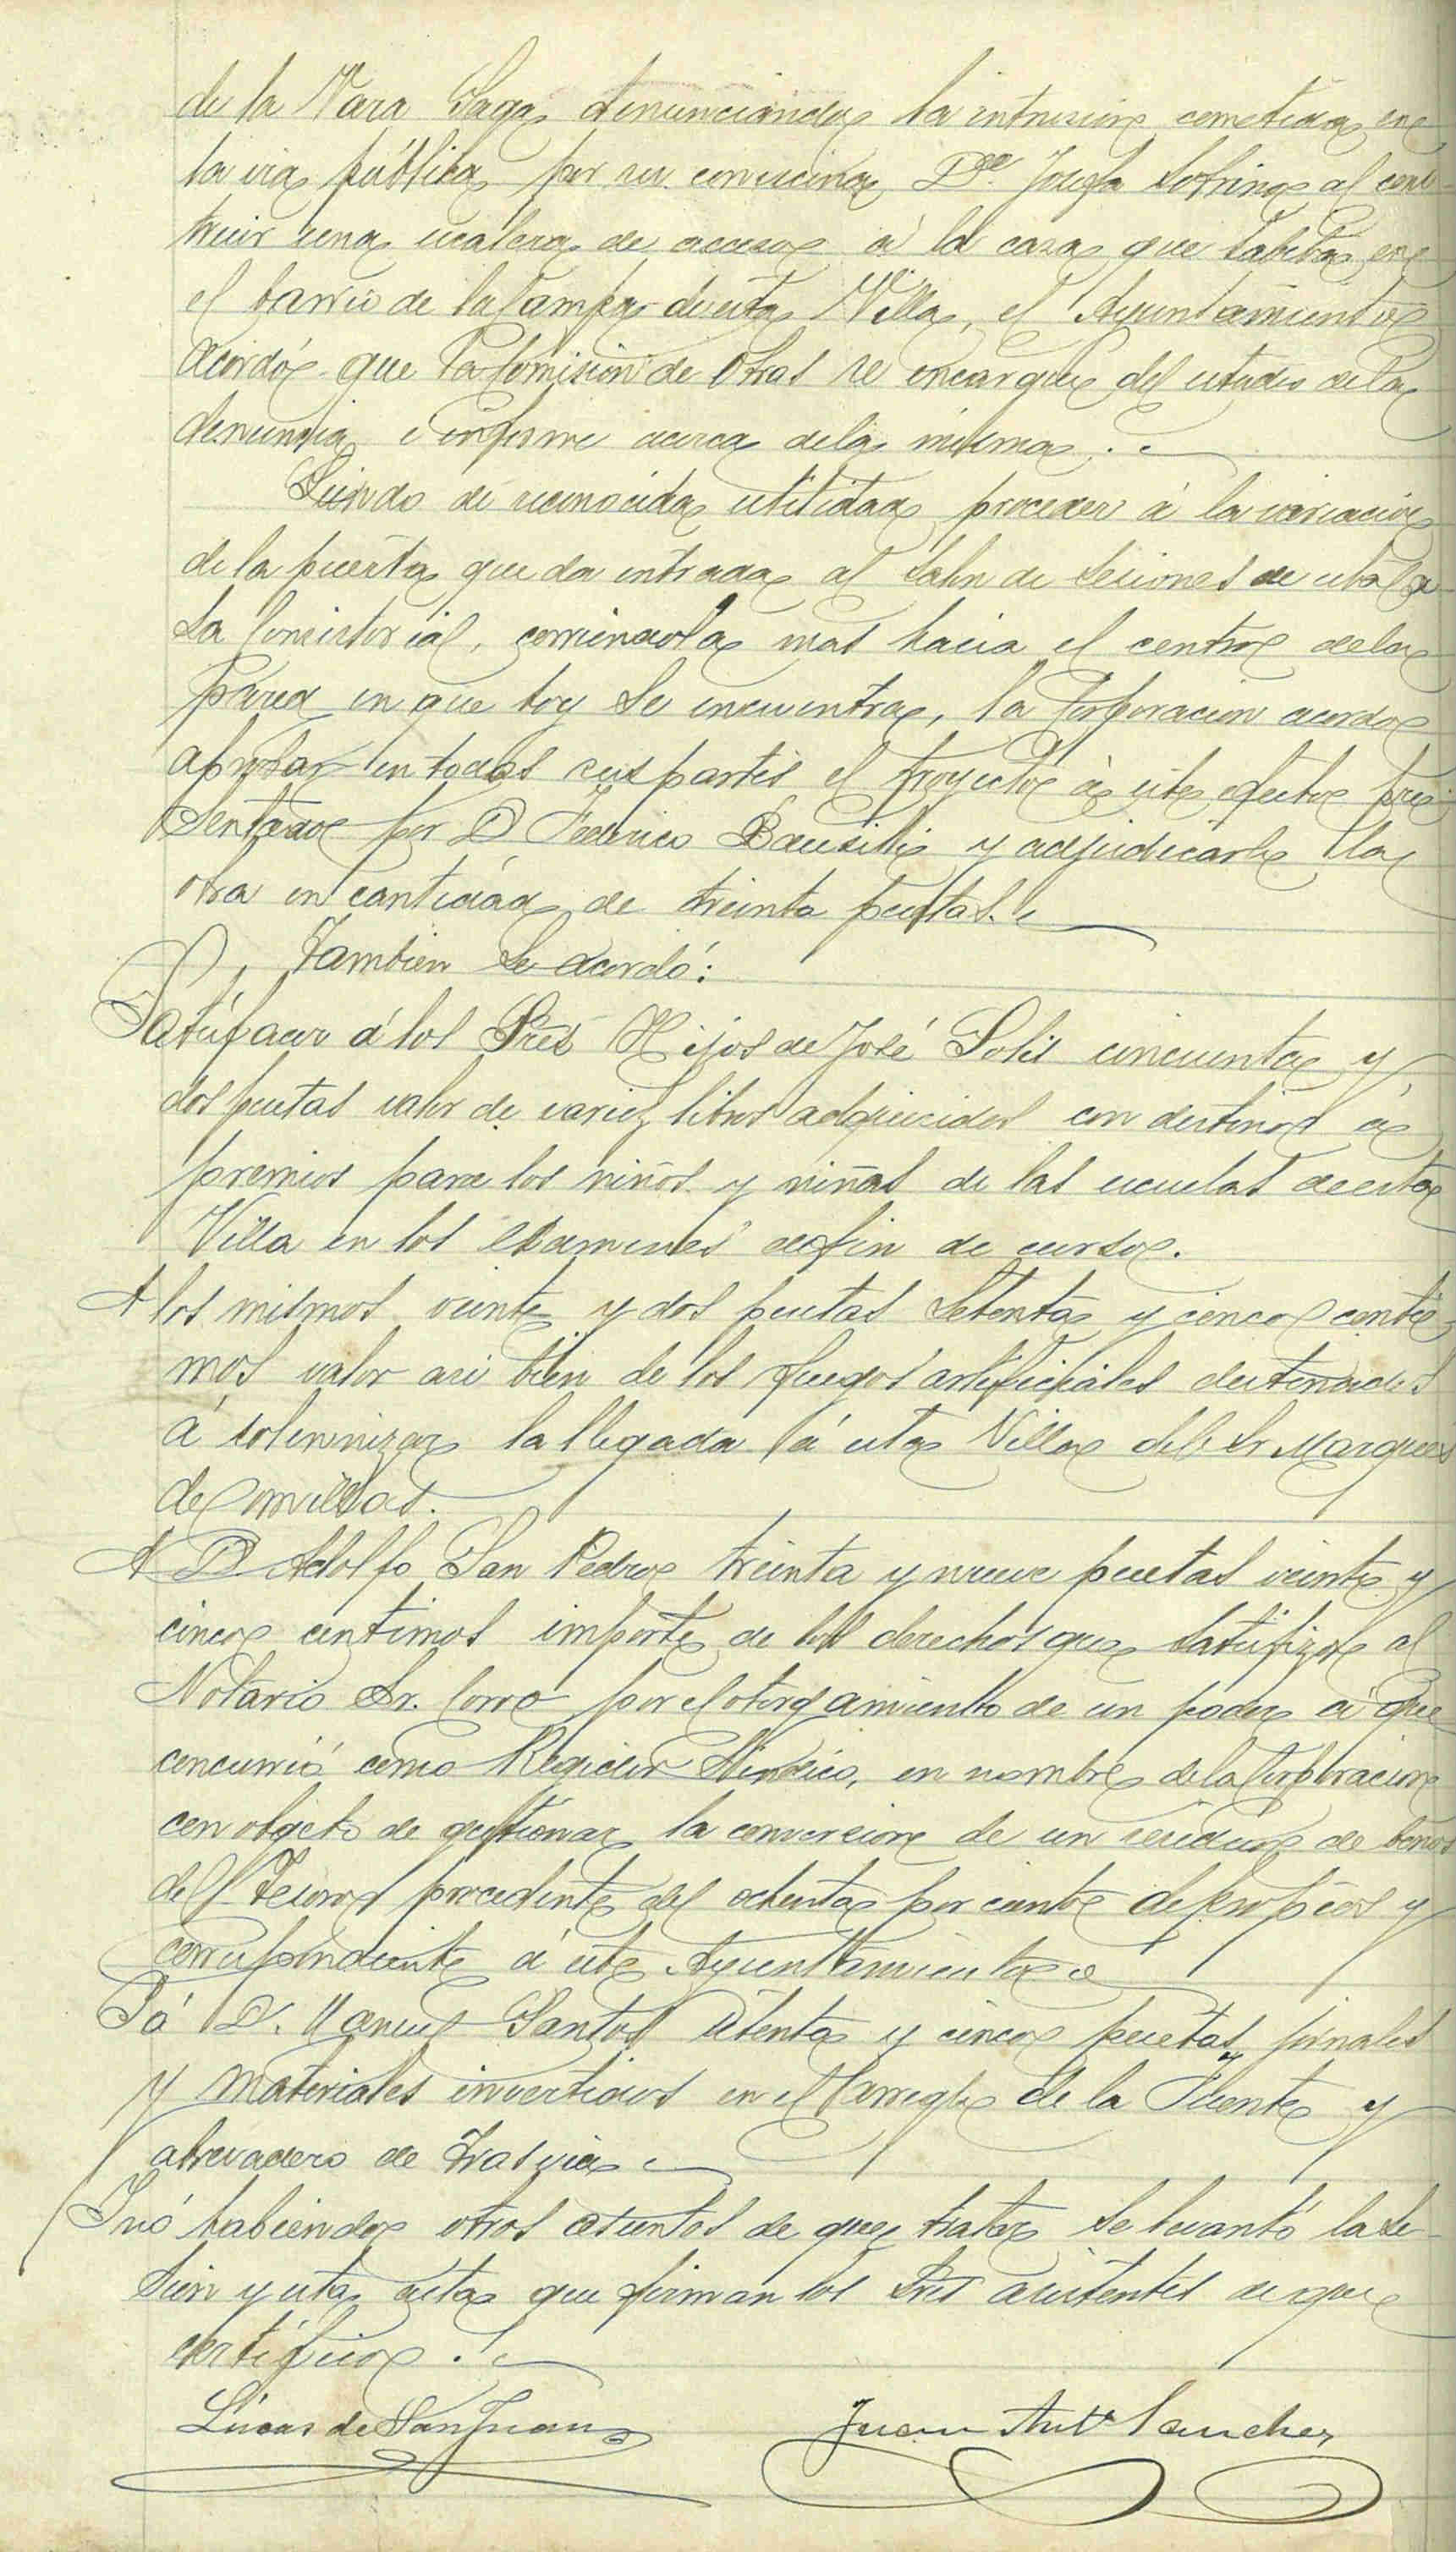 de la Vara Saga denunciando la intrusion cometida en
la via pública por su convecina D.ª Josefa Sobrino al cons
truir una escalera de acceso á la casa que habita en
el barrio de la Campa de esta Villa, el Ayuntamiento
acordó que la Comision de Obras se encargue del estudio de la
denuncia é informe acerca de la misma.
Siendo de reconocida utilidad proceder á la variacion
de la puerta que da entrada al Salon de Sesiones de esta Ca
sa Consistorial, corriendola mas hacia el centro de la
pared en que hoy se encuentra, la Corporacion acordó
aprobar en todas sus partes el proyecto á este efecto pre
sentado por D Federico y adjudicarle la
obra en cantidad de treinta pesetas.
Tambien se acordó:
Satisfacer á los Sres Hijos de José Solis cincuenta y
dos pesetas valor de varios libros adquiridos con destino á
premios para los niños y niñas de las escuelas de esta
Villa en los examenes de fin de curso.
A los mismos veinte y dos pesetas setenta y cinco centi
mos valor asi bien de los fuegos artificiales destinados
á solemnizar la llegada á esta Villa del Sr Marques
de Comillas.
A D Adolfo San Pedro treinta y nueve pesetas veinte y
cinco centimos importe de los derechos que satisfizo al
Notario Sr. Corro por el otorgamiento de un poder á que
concurrió como Regidor Síndico, en nombre de la Corporacion
con objeto de gestionar la conversion de un residuo de bonos
del Tesoro procedente del ochenta por ciento de propios y
correspondiente á este Ayuntamiento
Y á D. Manuel Santos setenta y cinco pesetas, jornales
y materiales invertidos en el arreglo de la Fuente y
abrevadero de Trasvia
Y nó habiendo otros asuntos de que tratar se levantó la se
sion y esta acta que firman los Sres asistentes de que
certifico.
Lúcas de San Juan
Juan Ant.º Sanchez